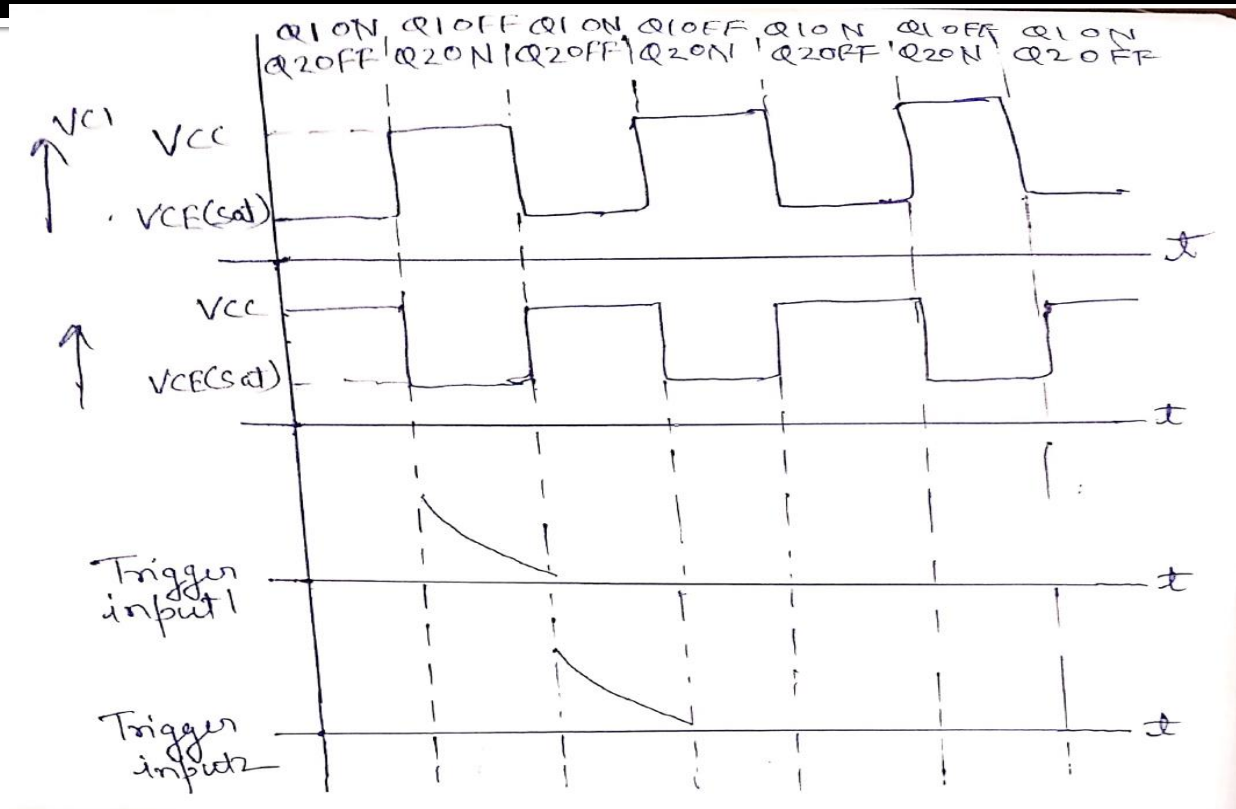 Q1ON Q1OFF Q1ON Q1OFF Q1ON Q1OFF Q1ON
Q2OFF Q2ON Q2OFF Q2ON Q2OFF Q2ON Q2OFF
VC1
VCC
VCE(sat)
t
VCC
VCE(sat)
t
Trigger
input1
t
Trigger
input2
t